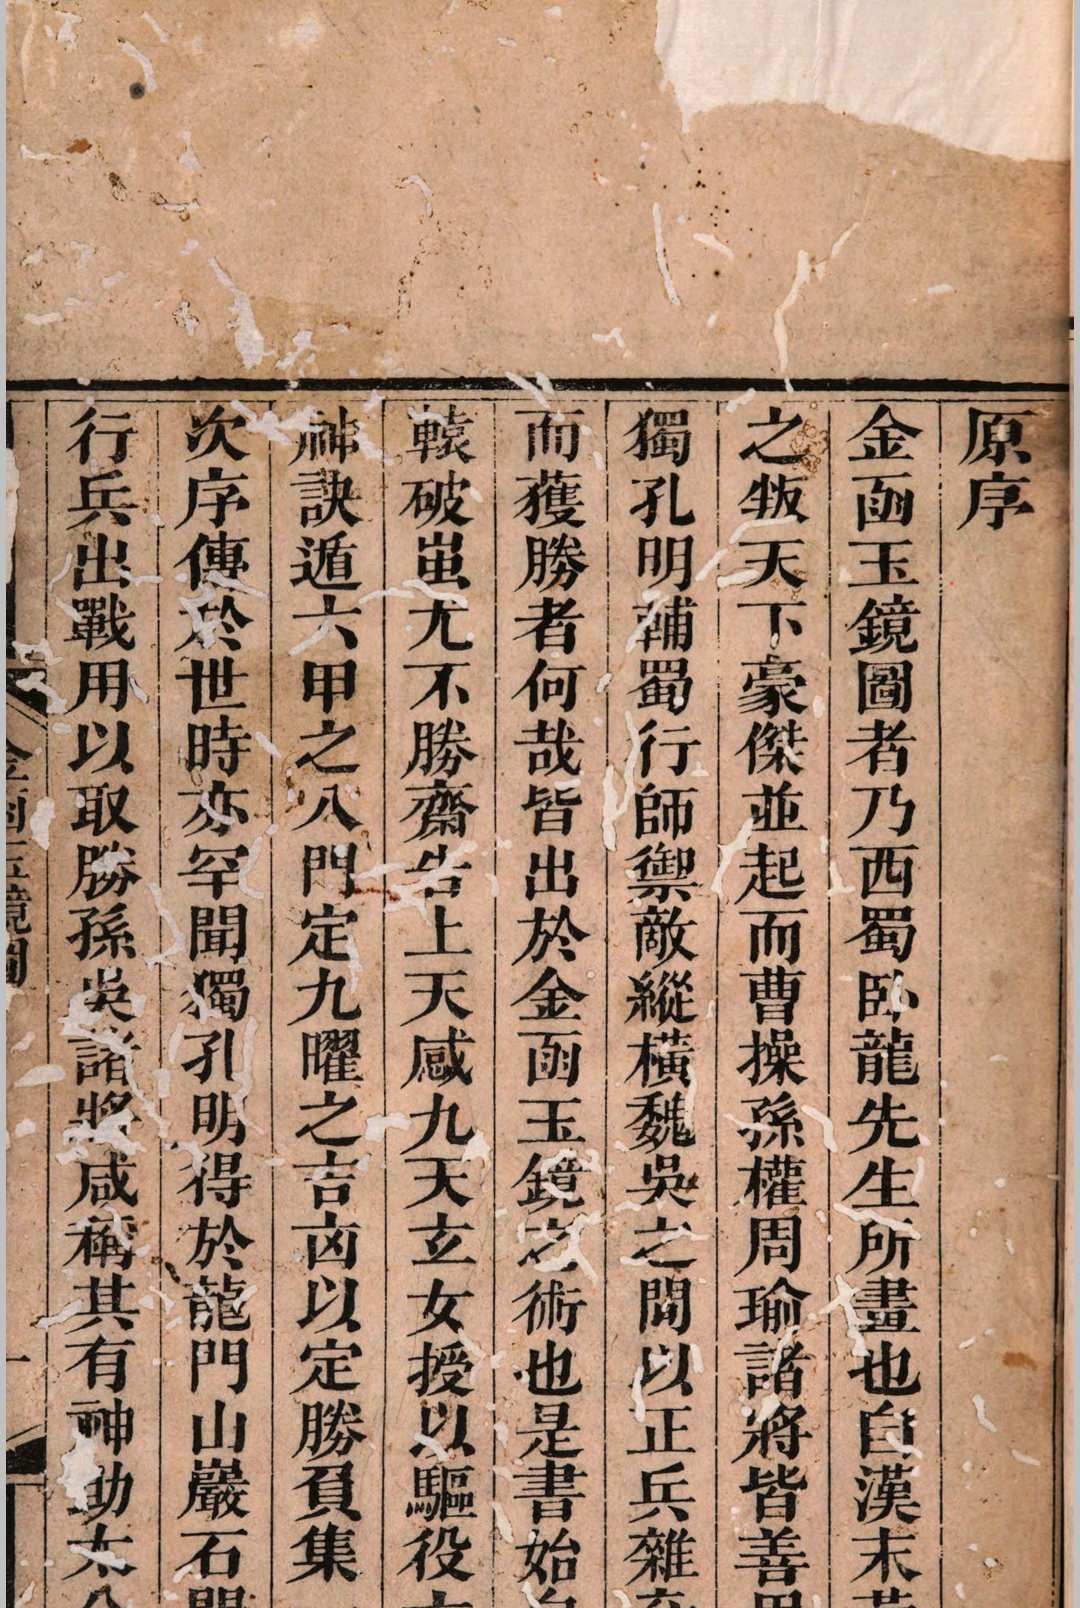 原序
金函玉鏡圖者乃西蜀臥龍先生所畫也自漢末黃
之叛天下豪傑並起而曹操孫權周瑜諸將皆善用
獨孔明輔蜀行師禦敵縱橫魏吳之間以正兵雜
而獲勝者何哉皆出於金函玉鏡之術也是書始自
轅破蚩尤不勝齋告上天感九天玄女授以驅役六
神訣遁六甲之八門定九曜之吉凶以定勝負集
次序傳於世時亦罕聞獨孔明得於龍門山巖石
行兵出戰用以取勝孫吳諸將咸稱其有神助太公
金函玉鏡圖
一